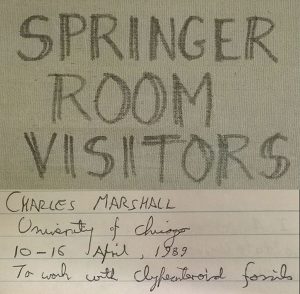 SPRINGER
ROOM
VISITORS
CHARLES MARSHALL
University of Chicago
10-16 April, 1989
To work with clypeasteroid fossils